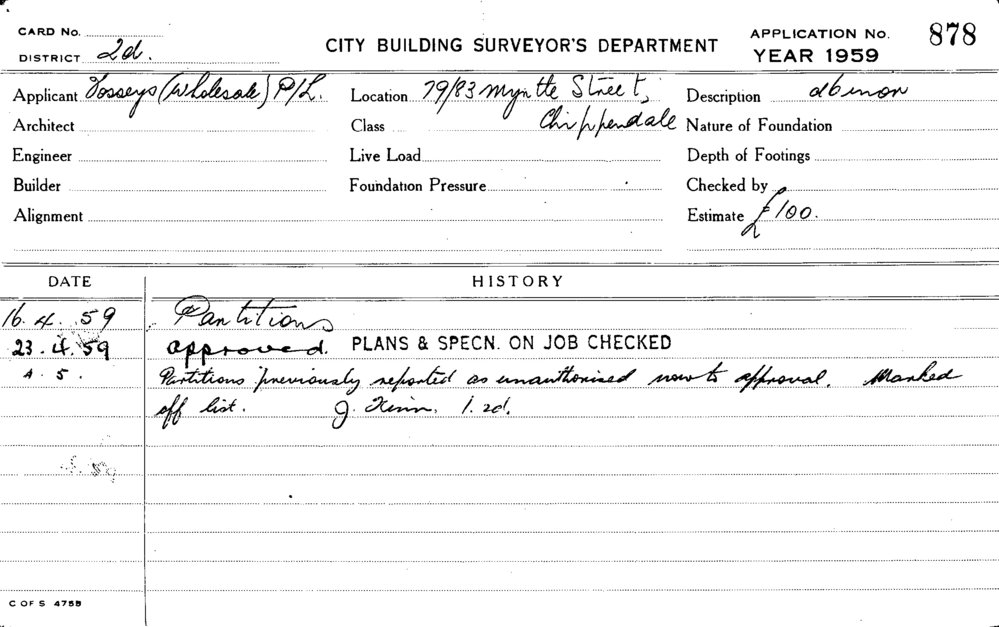 CARD No.
DISTRICT 2d.
CITY BUILDING SURVEYOR'S DEPARTMENT
APPLICATION No. 878
YEAR 1959
Applicant Fosseys (Wholesale) P/L.
Location 79/83 Myrtle Street,
Chippendale
Description
Architect
Class
Nature of Foundation
Engineer
Live Load
Depth of Footings
Builder
Foundation Pressure
Checked by
Alignment
Estimate £100.
DATE HISTORY
16. 4. 59 Partitions
23. 4. 59 approved. PLANS & SPECN. ON JOB CHECKED
4. 5. Partitions previously reported as unauthorised now to approval. Marked
off list. J. 1. 2d.
C OF S 475B